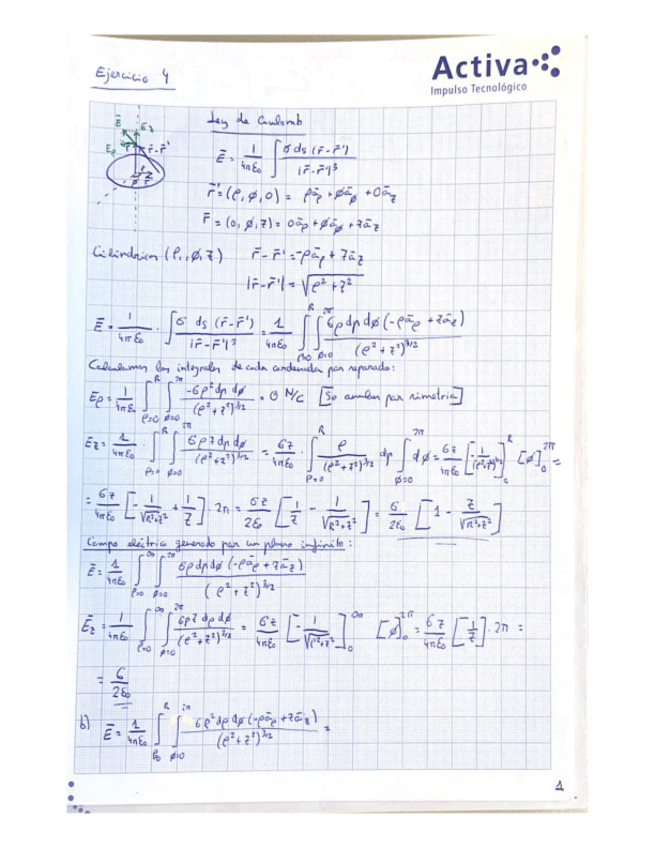 Ejercicio 4
Activa
Impulso Tecnológico
Ley de Coulomb
Ē = 1/4πε₀ ∫ σ ds (r̄-r̄')/|r̄-r̄'|³
r̄' = (ρ, ϕ, 0) = ρāρ + ϕāϕ + 0āz
r̄ = (0, ϕ, z) = 0āρ + ϕāϕ + zāz
Cilíndricas (ρ, ϕ, z) r̄-r̄' = -ρāρ + zāz
|r̄-r̄'| = √(ρ² + z²)
Ē = 1/4πε₀ · ∫ σ ds (r̄-r̄')/|r̄-r̄'|³ = 1/4πε₀ ∫_{ρ=0}^{R} ∫_{ϕ=0}^{2π} σρ dρ dϕ (-ρāρ + zāz)/(ρ² + z²)^{3/2}
Calculamos las integrales de cada coordenada por separado:
Eρ = 1/4πε₀ ∫_{ρ=0}^{R} ∫_{ϕ=0}^{2π} -σρ² dρ dϕ/(ρ² + z²)^{3/2} = 0 N/C [Se anulan por simetría]
Ez = 1/4πε₀ · ∫_{ρ=0}^{R} ∫_{ϕ=0}^{2π} σρz dρ dϕ/(ρ² + z²)^{3/2} = σz/4πε₀ · ∫_{ρ=0}^{R} ρ/(ρ² + z²)^{3/2} dρ ∫_{ϕ=0}^{2π} dϕ = σz/4πε₀ [-1/(ρ²+z²)^{1/2}]_0^R [ϕ]_0^{2π} =
= σz/4πε₀ [-1/√(R²+z²) + 1/z] · 2π = σz/2ε₀ [1/z - 1/√(R²+z²)] = σ/2ε₀ [1 - z/√(R²+z²)]
Campo eléctrico generado por un plano infinito:
Ē = 1/4πε₀ ∫_{ρ=0}^{∞} ∫_{ϕ=0}^{2π} σρ dρ dϕ (-ρāρ + zāz)/(ρ² + z²)^{3/2}
Ēz = 1/4πε₀ ∫_{ρ=0}^{∞} ∫_{ϕ=0}^{2π} σρz dρ dϕ/(ρ² + z²)^{3/2} = σz/4πε₀ [-1/√(ρ²+z²)]_0^∞ [ϕ]_0^{2π} = σz/4πε₀ [-1/z] · 2π =
= σ/2ε₀
b) Ē = 1/4πε₀ ∫_{ρ0}^{R} ∫_{ϕ=0}^{2π} σρ² dρ dϕ (-ρāρ + zāz)/(ρ² + z²)^{3/2} =
1